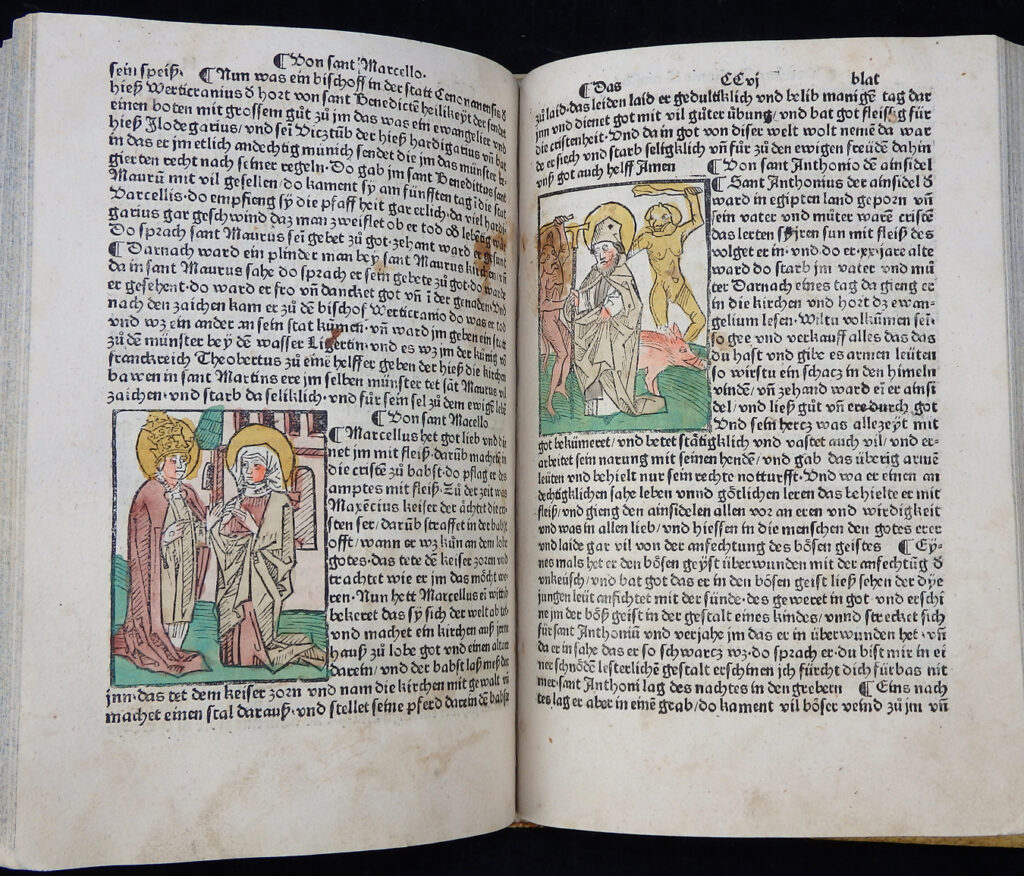 ¶Von sant Marcello.
sein speiß. ¶Nun was ein bischoff in der statt Cenonanensis d̄
hieß Werticranius d̄ hort von sant Benedictē heilikeyt der sendet
einen boten mit grossem gůt zů jm das was ein ewangelier vnd
hieß Ilodegarius/vnd seī Vicztůb der hieß hardigarius vn̄ bat
in das er jm etlich andechtig münich sendet die jm das münster re-
gierten recht nach seiner regeln. Do gab jm sant Benedictus sant
Maurū mit vil gesellen/do kament sÿ am fünfften tag ī die stat
Varcellis. do empfieng sÿ die pfaff heit gar erlich. da viel hardi-
garius gar geschwind daz man zweiflet ob er tod od̄ lebētig wär
Do sprach sant Maurus seī gebet zů got. zehant ward er gesant
¶Darnach ward ein plinder man bey sant Maurus kirchen. vn̄
da in sant Maurus sahe do sprach er sein gebete zů got. do ward
er gesehent. do ward er fro vn̄ dancket got vn̄ ī der genaden. Vnd
nach den zaichen kam er zů dē bischof Werticranio do was er tod
vnd wz ein ander an sein stat kūmen. vn̄ ward jm geben ein statt
zů dē münster beÿ dē wasser Ligertin. vnd es wz jm der künig vō
franckreich Theobertus zů einē helffer geben der hieß die kirchen
bawen in sant Martins ere jm selben münster tet sāt Maurus vil
zaichen. vnd starb da seliklich. vnd für sein sel zů dem ewigē lebē
¶Von sant Macello
¶Marcellus het got lieb vnd die
net jm mit fleiß. darūb machetē in
die cristē zů babst. do pflag er des
amptes mit fleiß. Zů der zeit was
Maxēcius keiser der ächtit die cri-
sten ser/darūb straffet in der babst
offt/wann er wz kün an dem lobe
gotes. das tete dē keiser zorn vnd
trachtet wie er jm das möcht we-
ren. Nun hett Marcellus eī wittib
bekeret das sÿ sich der welt ab tet.
vnd machet ein kirchen auß jrem
hauß zů lobe got vnd einen altare
darein/vnd der babst laß meß der
jnn. das tet dem keiser zorn vnd nam die kirchen mit gewalt vn̄
machet einen stal darauß. vnd stellet seine pferd darein dē babst
¶Das CCvj blat
zů laid. das leiden laid er gedultiklich vnd belib manigē tag dar
jnn vnd dienet got mit vil gůter übung/vnd bat got fleissig für
die cristenheit. Vnd da in got von diser welt wolt nemē da war
de er siech vnd starb seligklich vn̄ für zů den ewigen freüdē dahin
vnß got auch helff Amen ¶Von sant Anthonio dē ainsidel
¶Sant Anthonius der ainsidel d̄
ward in egipten land geporn vn̄
sein vater vnd můter warē cristē
das lerten sÿ jren sun mit fleiß des
volget er in. vnd do er. xx. jare alte
ward do starb jm vater vnd mů
ter Darnach eines tag da gieng er
in die kirchen vnd hort dz ewan-
gelium lesen. Wiltu volkūmen sei.
so gee vnd verkauff alles das das
du hast vnd gibe es armen leüten
so wirstu ein schacz in den himeln
vindē/vn̄ zehand ward eī er ainsi
del/vnd ließ gůt vn̄ ere durch got
Vnd sein hercz was allezeyt mit
got bekümeret/vnd betet stätigklich vnd vastet auch vil/vnd er-
arbeitet sein narung mit seinen hendē/vnd gab das überig armē
leüten vnd behielt nur sein rechte notturfft. Vnd wa er einen an
dechtigklichen sahe leben vnnd götlichen leren das behielte er mit
fleiß/vnd gieng den ainsidelen allen vor an eren vnd wirdigkeit
vnd was in allen lieb/vnd hiessen in die menschen den gotes erer
vnd laide gar vil von der anfechtung des bösen geistes ¶Eÿ-
nes mals het er den bösen geÿst überwunden mit der anfechtūg d̄
vnkeüsch/vnd bat got das er in den bösen geist ließ sehen der dÿe
jungen leüt anfichtet mit der sünde. des geweret in got vnd erschi
ne jm der böß geist in der gestalt eines kindes/vnnd streecket sich
für sant Anthoniū vnd verjahe jm das er in überwunden het. vn̄
da er in sahe das er so schwarcz wz. do sprach er. du bist mir in ei
ner schnödē lesterlichē gestalt erschinen jch fürcht dich fürbas nit
mer. sant Anthoni lag des nachtes in den grebern ¶Eins nach
tes lag er aber in einē grab/do kament vil böser veind zů jm vn̄